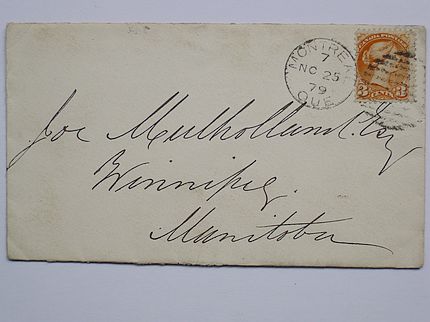 CANADA POSTAGE
3 CENTS 3
MONTREAL
7
NO 25
79
QUE
Joe Mulholland. Esq
Winnipeg.
Manitoba